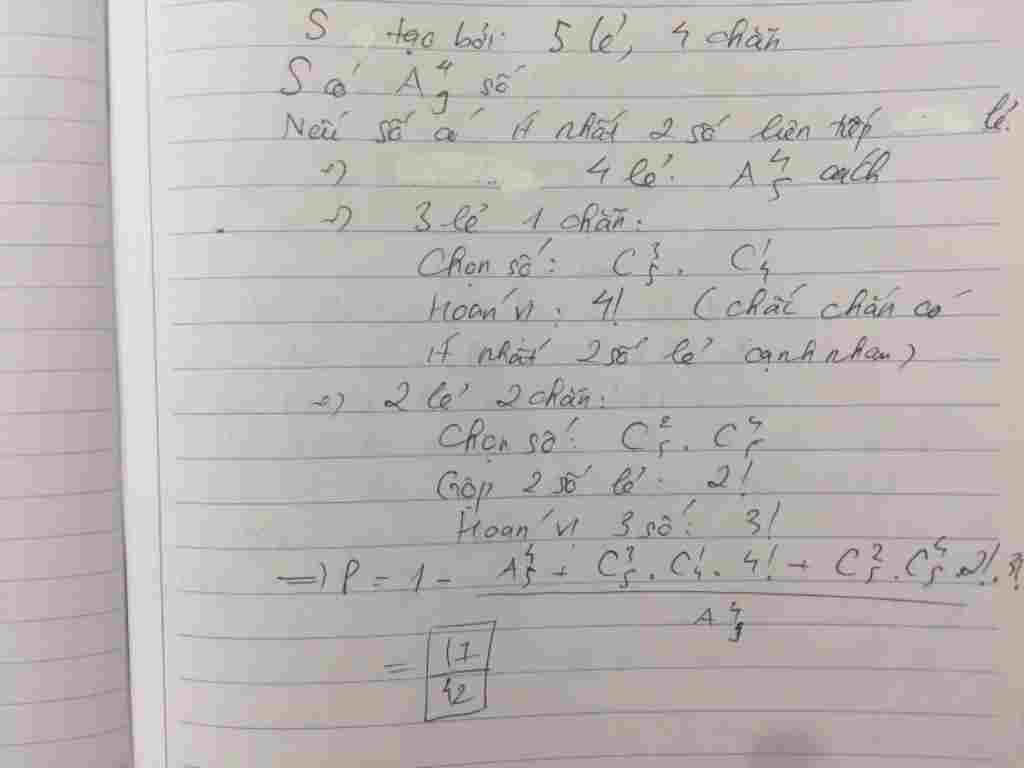 S tạo bởi: 5 lẻ, 4 chẵn
S có A⁴₉ số
Nếu số có ít nhất 2 số liên tiếp lẻ.
+) 4 lẻ: A⁴₅ cách
+) 3 lẻ 1 chẵn:
Chọn số: C³₅ . C¹₄
Hoán vị: 4! (chắc chắn có
ít nhất 2 số lẻ cạnh nhau)
+) 2 lẻ 2 chẵn:
Chọn số: C²₅ . C⁴₅
Gộp 2 số lẻ: 2!
Hoán vị 3 số: 3!
=> P = 1 - (A⁴₅ + C³₅ . C¹₄ . 4! + C²₅ . C⁴₅ . 2! . 3!) / A⁴₉
= 17/42